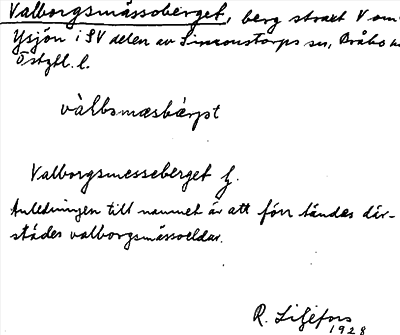 Valborgsmässoberget, berg strax V om
Ysjön i SV delen av Simonstorps sn, Bråbo h
Östgtl. l.
vàlbsmæsbærjət
Valborgsmesseberget
Anledningen till namnet är att förr tändes där-
städes valborgsmässoeldar.
R. Liljefors
1928